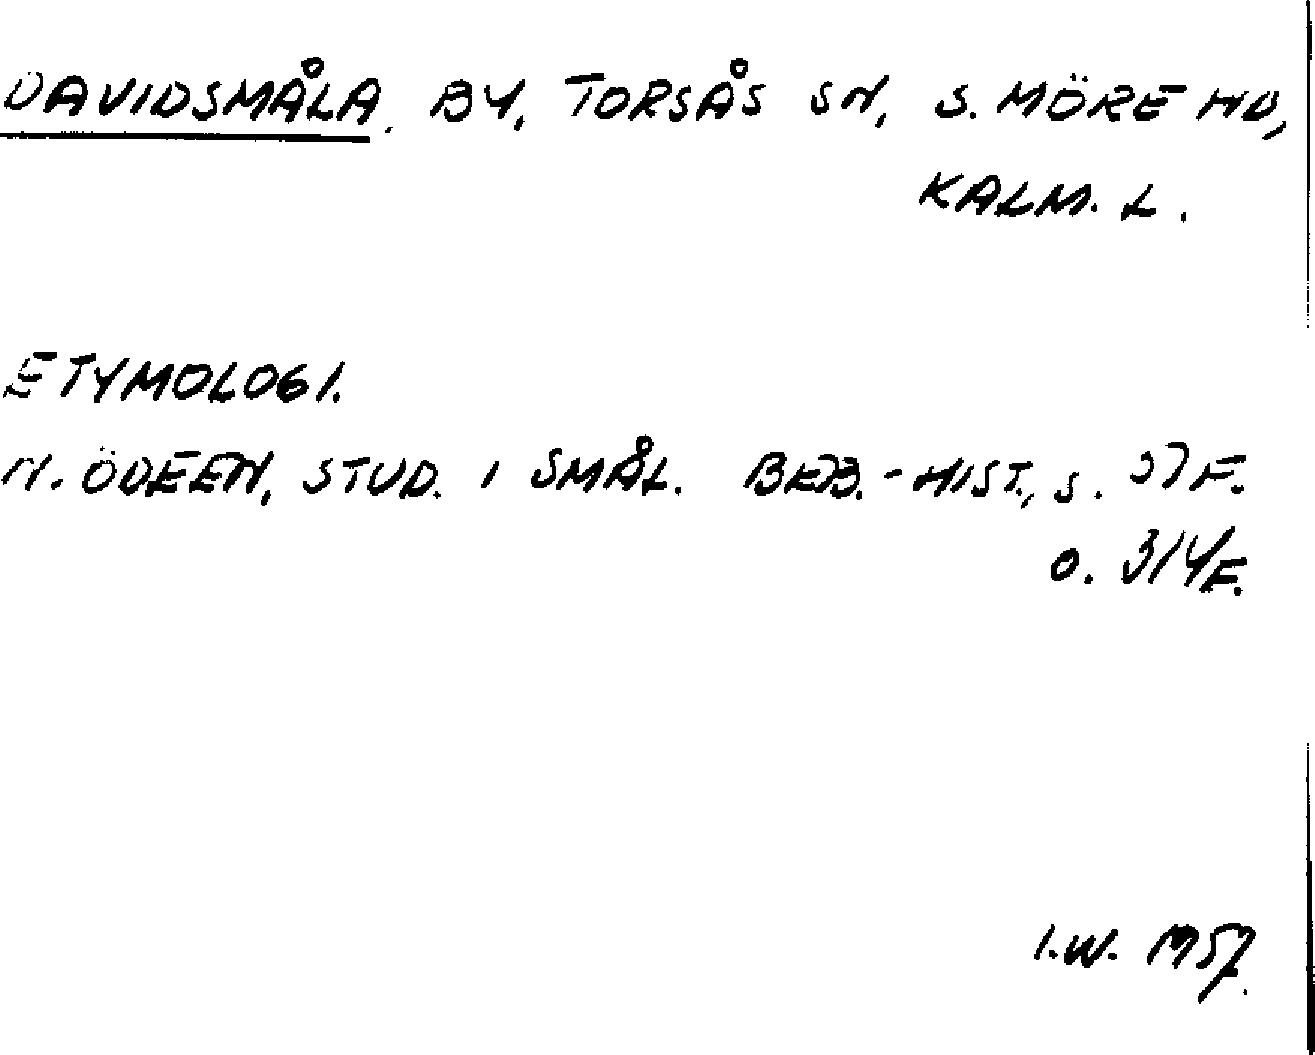 DAVIDSMÅLA, BY, TORSÅS SN, S. MÖRE HD,
KALM. L.
ETYMOLOGI.
N. ÖDEEN, STUD. I SMÅL. BEB.-HIST., S. 37 F.
O. 314 F.
I.W. 1957.